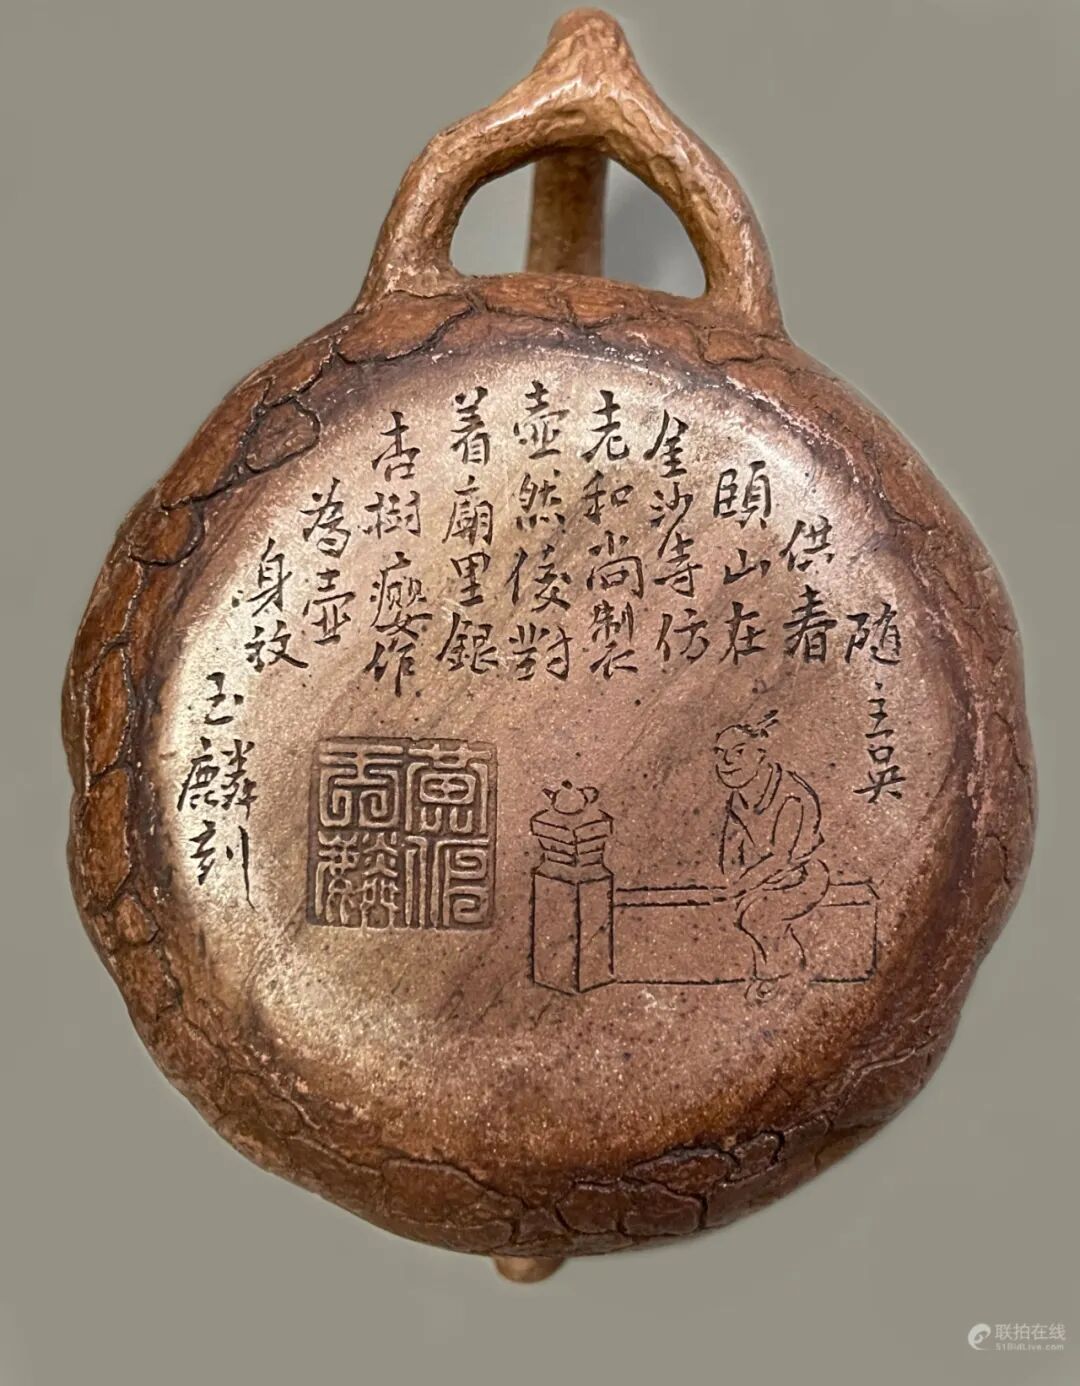 供春
随主吴
頤山在
金沙寺仿
老和尚製
壺然後對
着廟里銀
杏樹癭作
為壺
身
玉麟刻
黃
玉麟
联拍在线
51BidLive.com